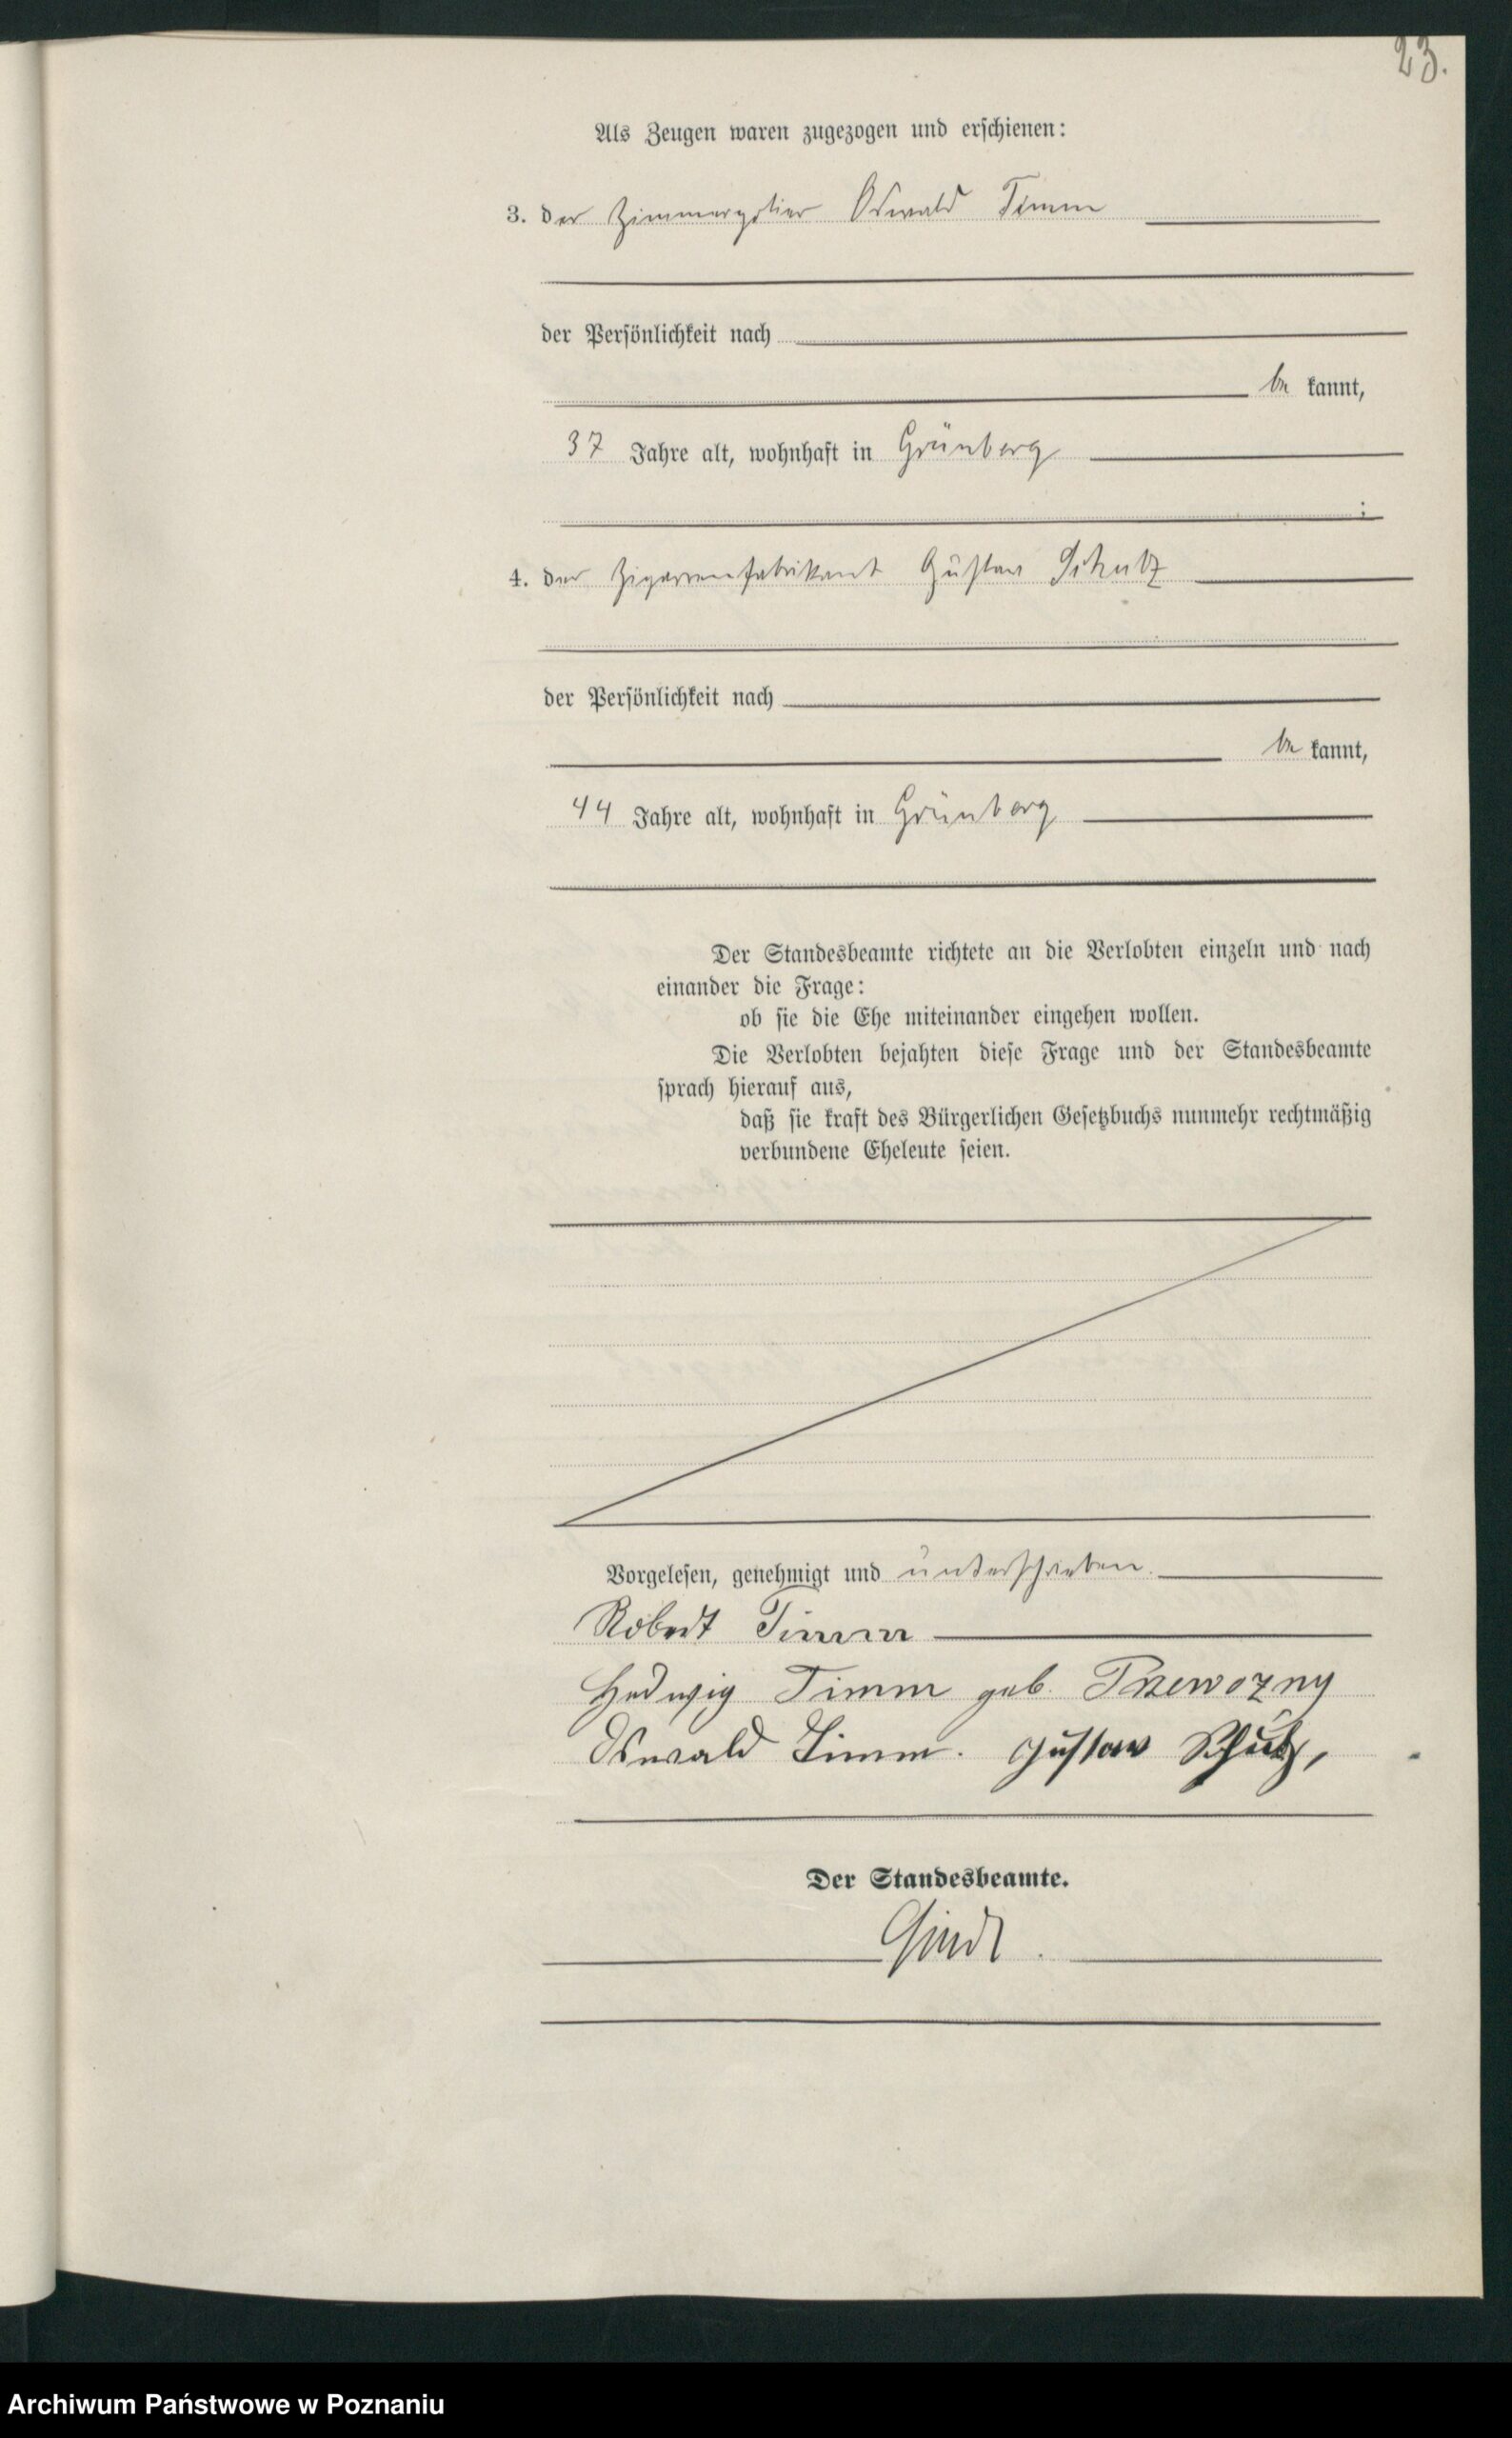 23.
Als Zeugen waren zugezogen und erschienen:
3. der Zimmerpolier Oswald Timm
der Persönlichkeit nach
be kannt,
37 Jahre alt, wohnhaft in Grünberg
;
4. der Zigarrenfabrikant Gustav Schulz
der Persönlichkeit nach
be kannt,
44 Jahre alt, wohnhaft in Grünberg
Der Standesbeamte richtete an die Verlobten einzeln und nach
einander die Frage:
ob sie die Ehe miteinander eingehen wollen.
Die Verlobten bejahten diese Frage und der Standesbeamte
sprach hierauf aus,
daß sie kraft des Bürgerlichen Gesetzbuchs nunmehr rechtmäßig
verbundene Eheleute seien.
Vorgelesen, genehmigt und unterschrieben.
Robert Timm
Hedwig Timm geb. Przewozny
Oswald Timm. Gustav Schulz,
Der Standesbeamte.
Archiwum Państwowe w Poznaniu